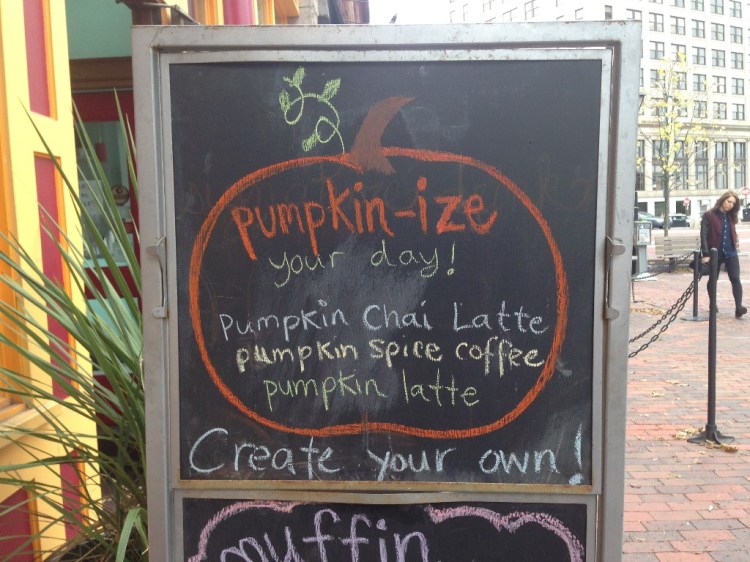 pumpkin-ize
your day!
Pumpkin Chai Latte
pumpkin spice coffee
pumpkin latte
Create your own!
muffin